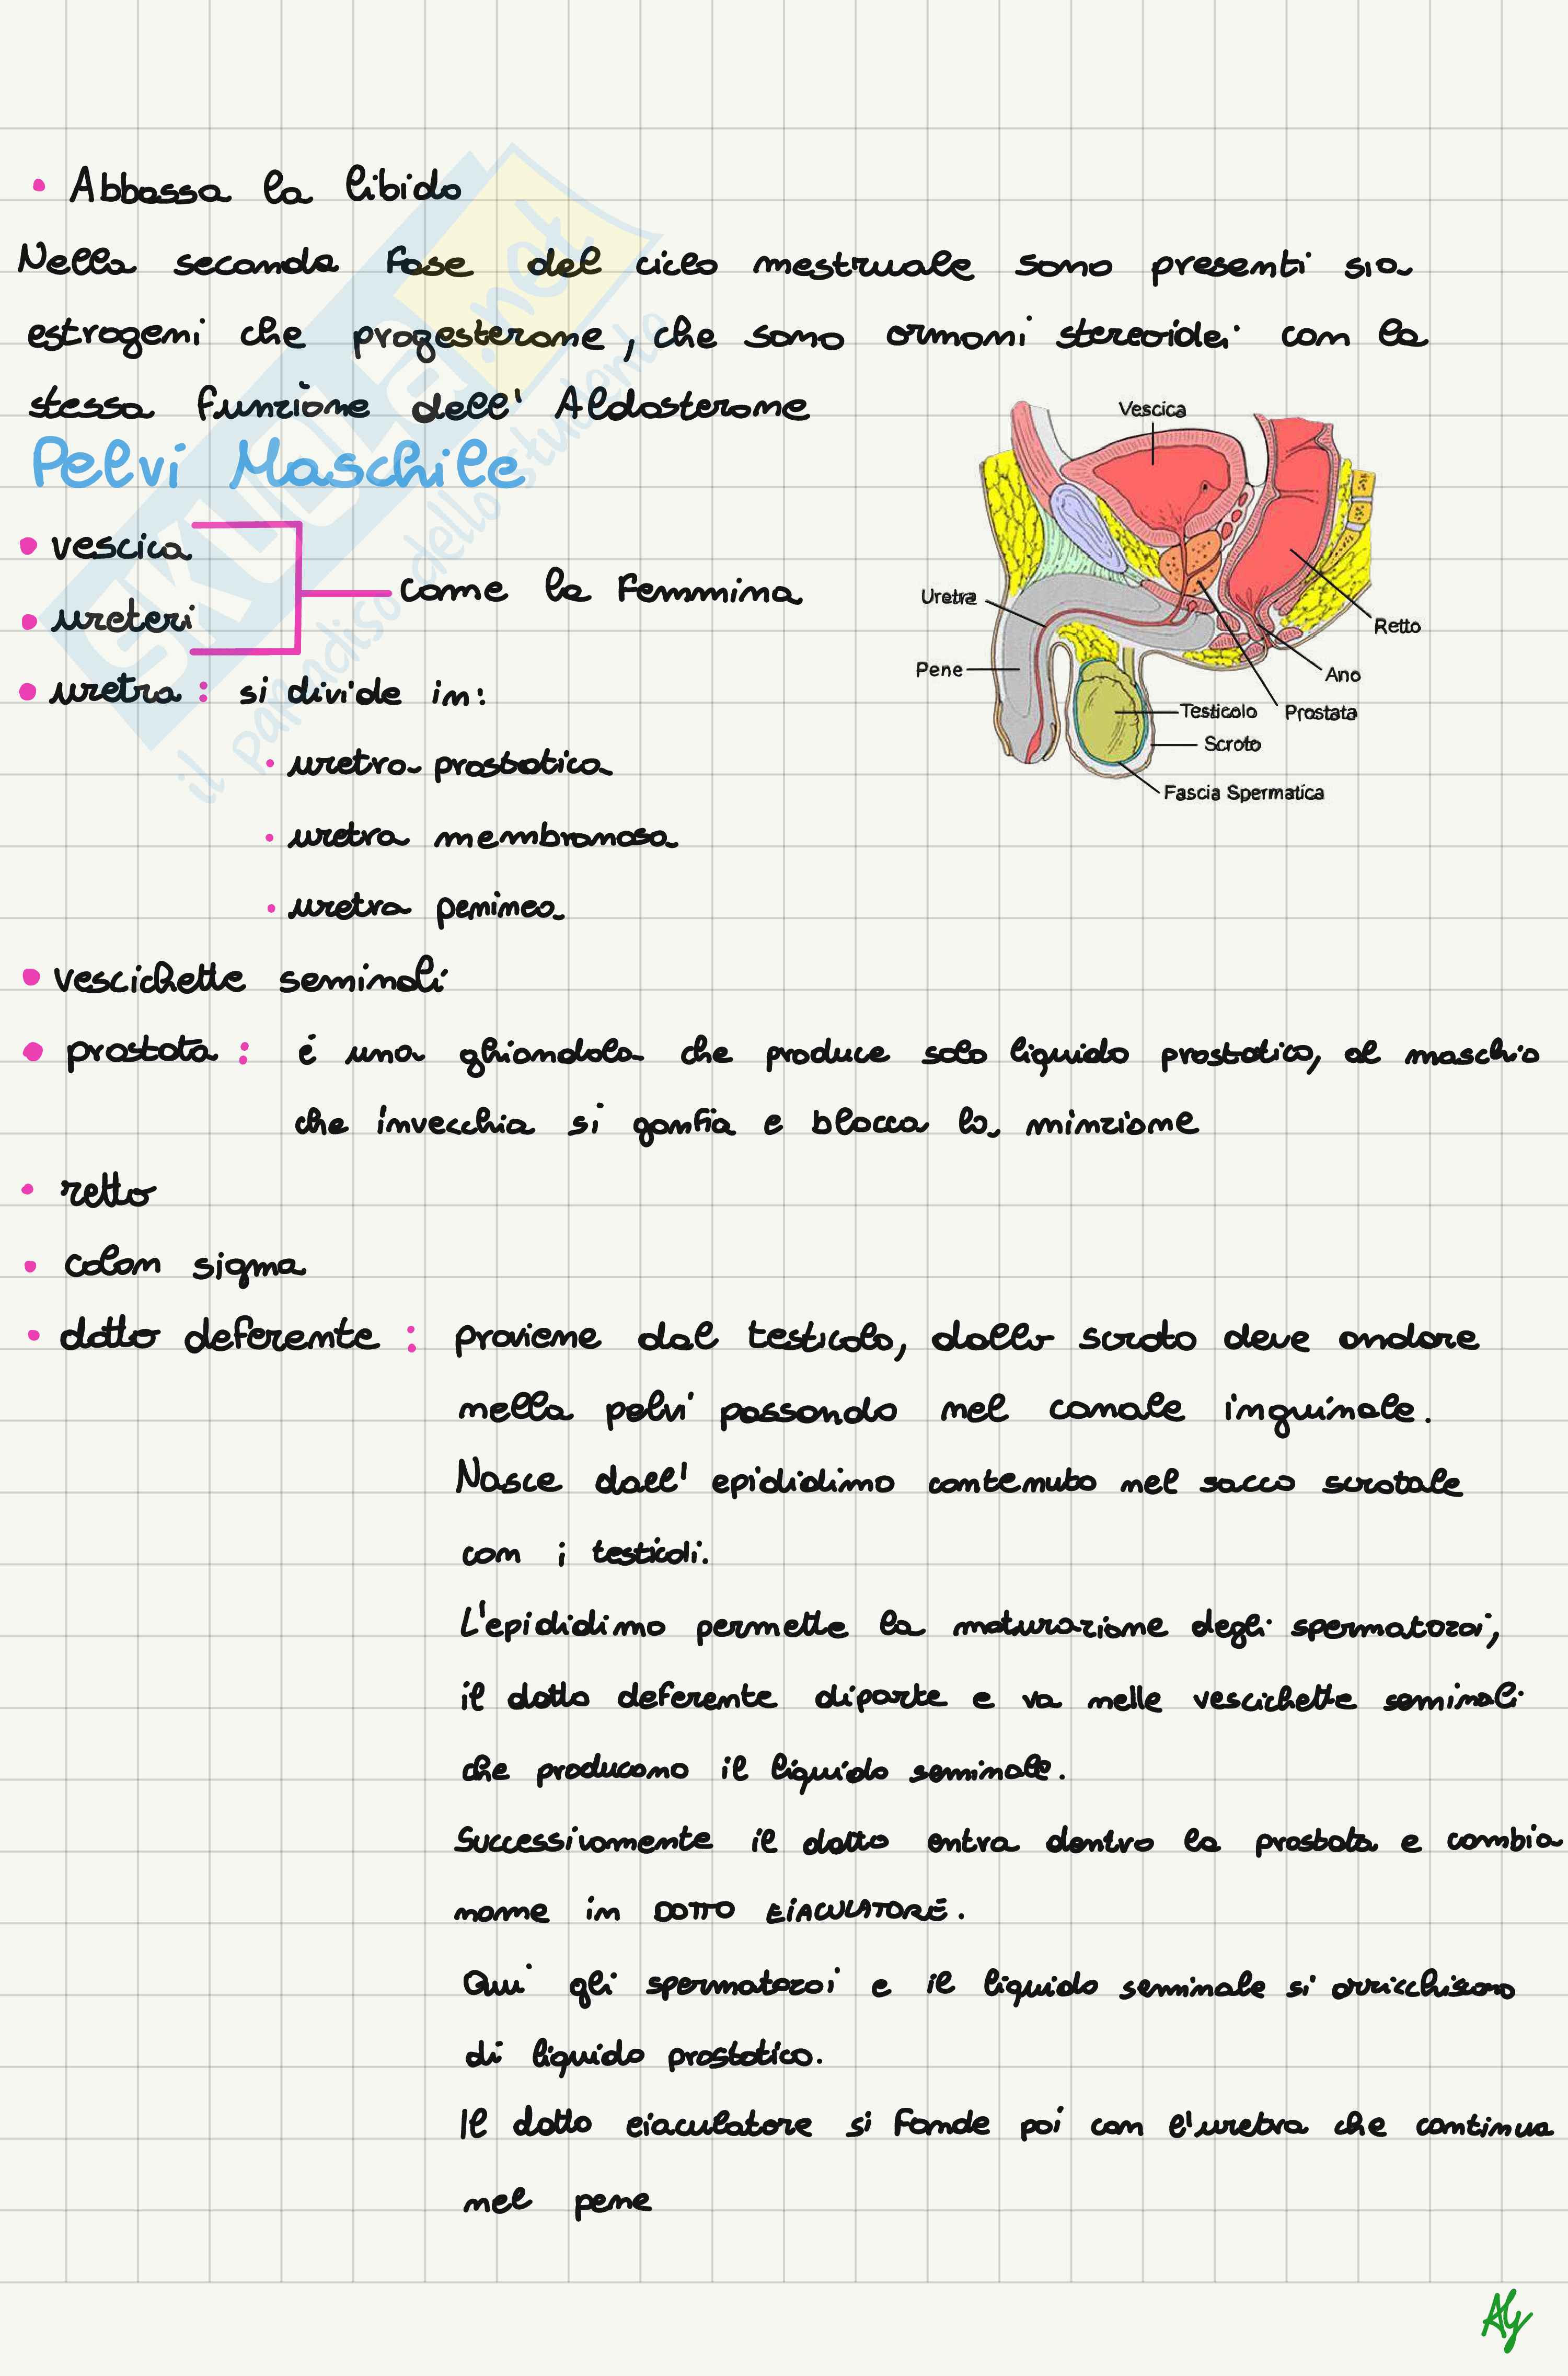 • Abbassa la libido
Nella seconda fase del ciclo mestruale sono presenti sia
estrogeni che progesterone, che sono ormoni stereoidei con la
stessa funzione dell' Aldosterone
Pelvi Maschile
• vescica
• ureteri
come la femmina
• uretra : si divide in:
• uretra prostatica
• uretra membranosa
• uretra peninea
• vescichette seminali
• prostata : é una ghiandola che produce solo liquido prostatico, al maschio
che invecchia si gonfia e blocca la minzione
• retto
• colon sigma
• dotto deferente : proviene dal testicolo, dallo scroto deve andare
nella pelvi passando nel canale inguinale.
Nasce dall' epididimo contenuto nel sacco scrotale
con i testicoli.
L'epididimo permette la maturazione degli spermatozoi,
il dotto deferente diparte e va nelle vescichette seminali
che producono il liquido seminale.
Successivamente il dotto entra dentro la prostata e cambia
nome in DOTTO EIACULATORE.
Qui gli spermatozoi e il liquido seminale si arricchiscono
di liquido prostatico.
Il dotto eiaculatore si fonde poi con l'uretra che continua
nel pene
Vescica
Uretra
Pene
Retto
Ano
Testicolo
Prostata
Scroto
Fascia Spermatica
SKUOLA.net
il paradiso dello studente
Aly